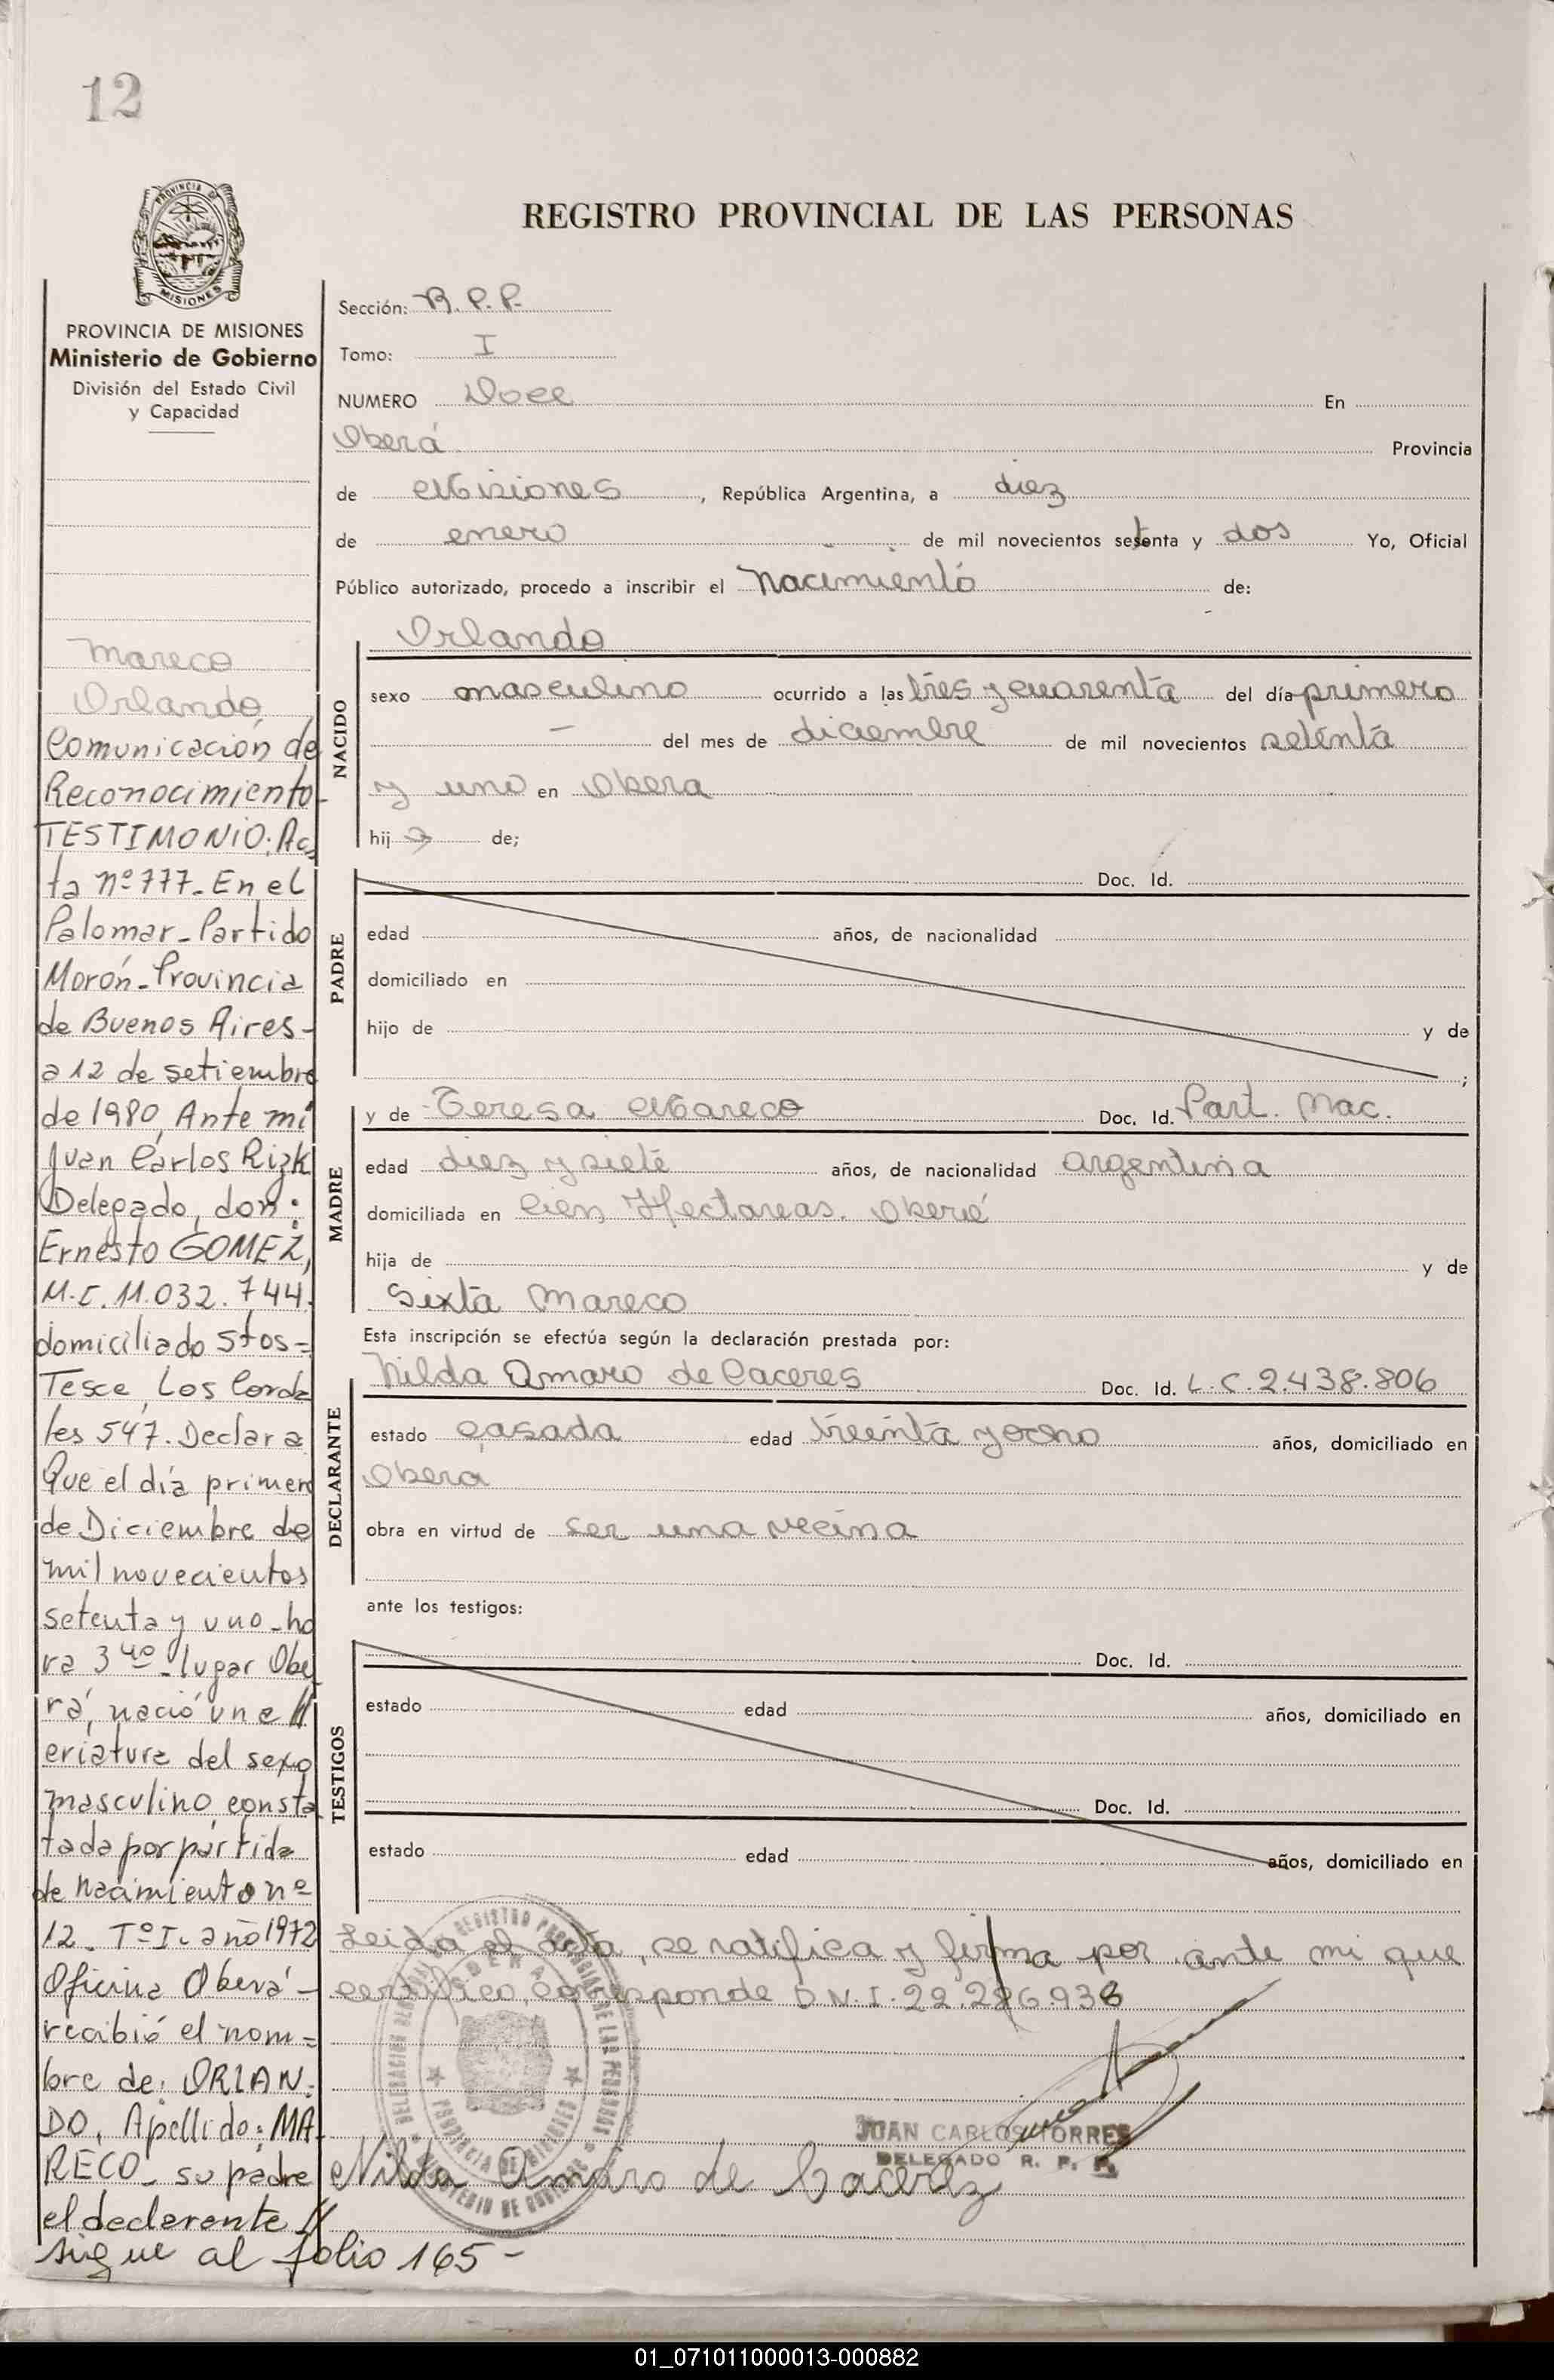 12
PROVINCIA DE MISIONES
MISIONES
PROVINCIA DE MISIONES
Ministerio de Gobierno
División del Estado Civil
y Capacidad
Mareco
Orlando
Comunicación de
Reconocimiento-
TESTIMONIO: Ac
ta nº 777- En el
Palomar- Partido
Morón- Provincia
de Buenos Aires-
a 12 de setiembre
de 1980, Ante mí
Juan Carlos Rizk
Delegado, don:
Ernesto GOMEZ,
M.I. 11.032.744.
domiciliado Stos=
Tesce, Los Corda
les 547. Declara
Que el día primero
de Diciembre de
mil novecientos
setenta y uno- ho
ra 3 40 - lugar Obe
rá, nació una //
criatura del sexo
masculino, consta
tada por partida
de nacimiento nº
12. Tº I. año 1972
Oficina Oberá-
recibió el nom=
bre de: ORLAN=
DO, Apellido: MA
RECO- su padre
el declarente //
sigue al folio 165-
REGISTRO PROVINCIAL DE LAS PERSONAS
Sección: R.P.P.
Tomo: I
NUMERO Doce En
Oberá Provincia
de Misiones, República Argentina, a diez
de enero de mil novecientos setenta y dos Yo, Oficial
Público autorizado, procedo a inscribir el Nacimiento de:
NACIDO
Orlando
sexo masculino ocurrido a las tres y cuarenta del día primero
- del mes de diciembre de mil novecientos setenta
y uno en Obera
hijo de;
PADRE
Doc. Id.
edad años, de nacionalidad
domiciliado en
hijo de y de
;
MADRE
y de Teresa Mareco Doc. Id. Part. Nac.
edad diez y siete años, de nacionalidad argentina
domiciliada en Cien Hectareas. Oberá
hija de y de
Sixta Mareco
Esta inscripción se efectúa según la declaración prestada por:
DECLARANTE
Nilda Amaro de Caceres Doc. Id. L.C. 2.438.806
estado casada edad treinta y ocho años, domiciliado en
Obera
obra en virtud de ser una vecina
ante los testigos:
TESTIGOS
Doc. Id.
estado edad años, domiciliado en
Doc. Id.
estado edad años, domiciliado en
Leida el acta, se ratifica y firma por ante mi que
certifico, corresponde D.N.I. 22.286.938
JUAN CARLOS TORRES
DELEGADO R. P. P.
Nilda Amaro de Cacerez
01_071011000013-000882